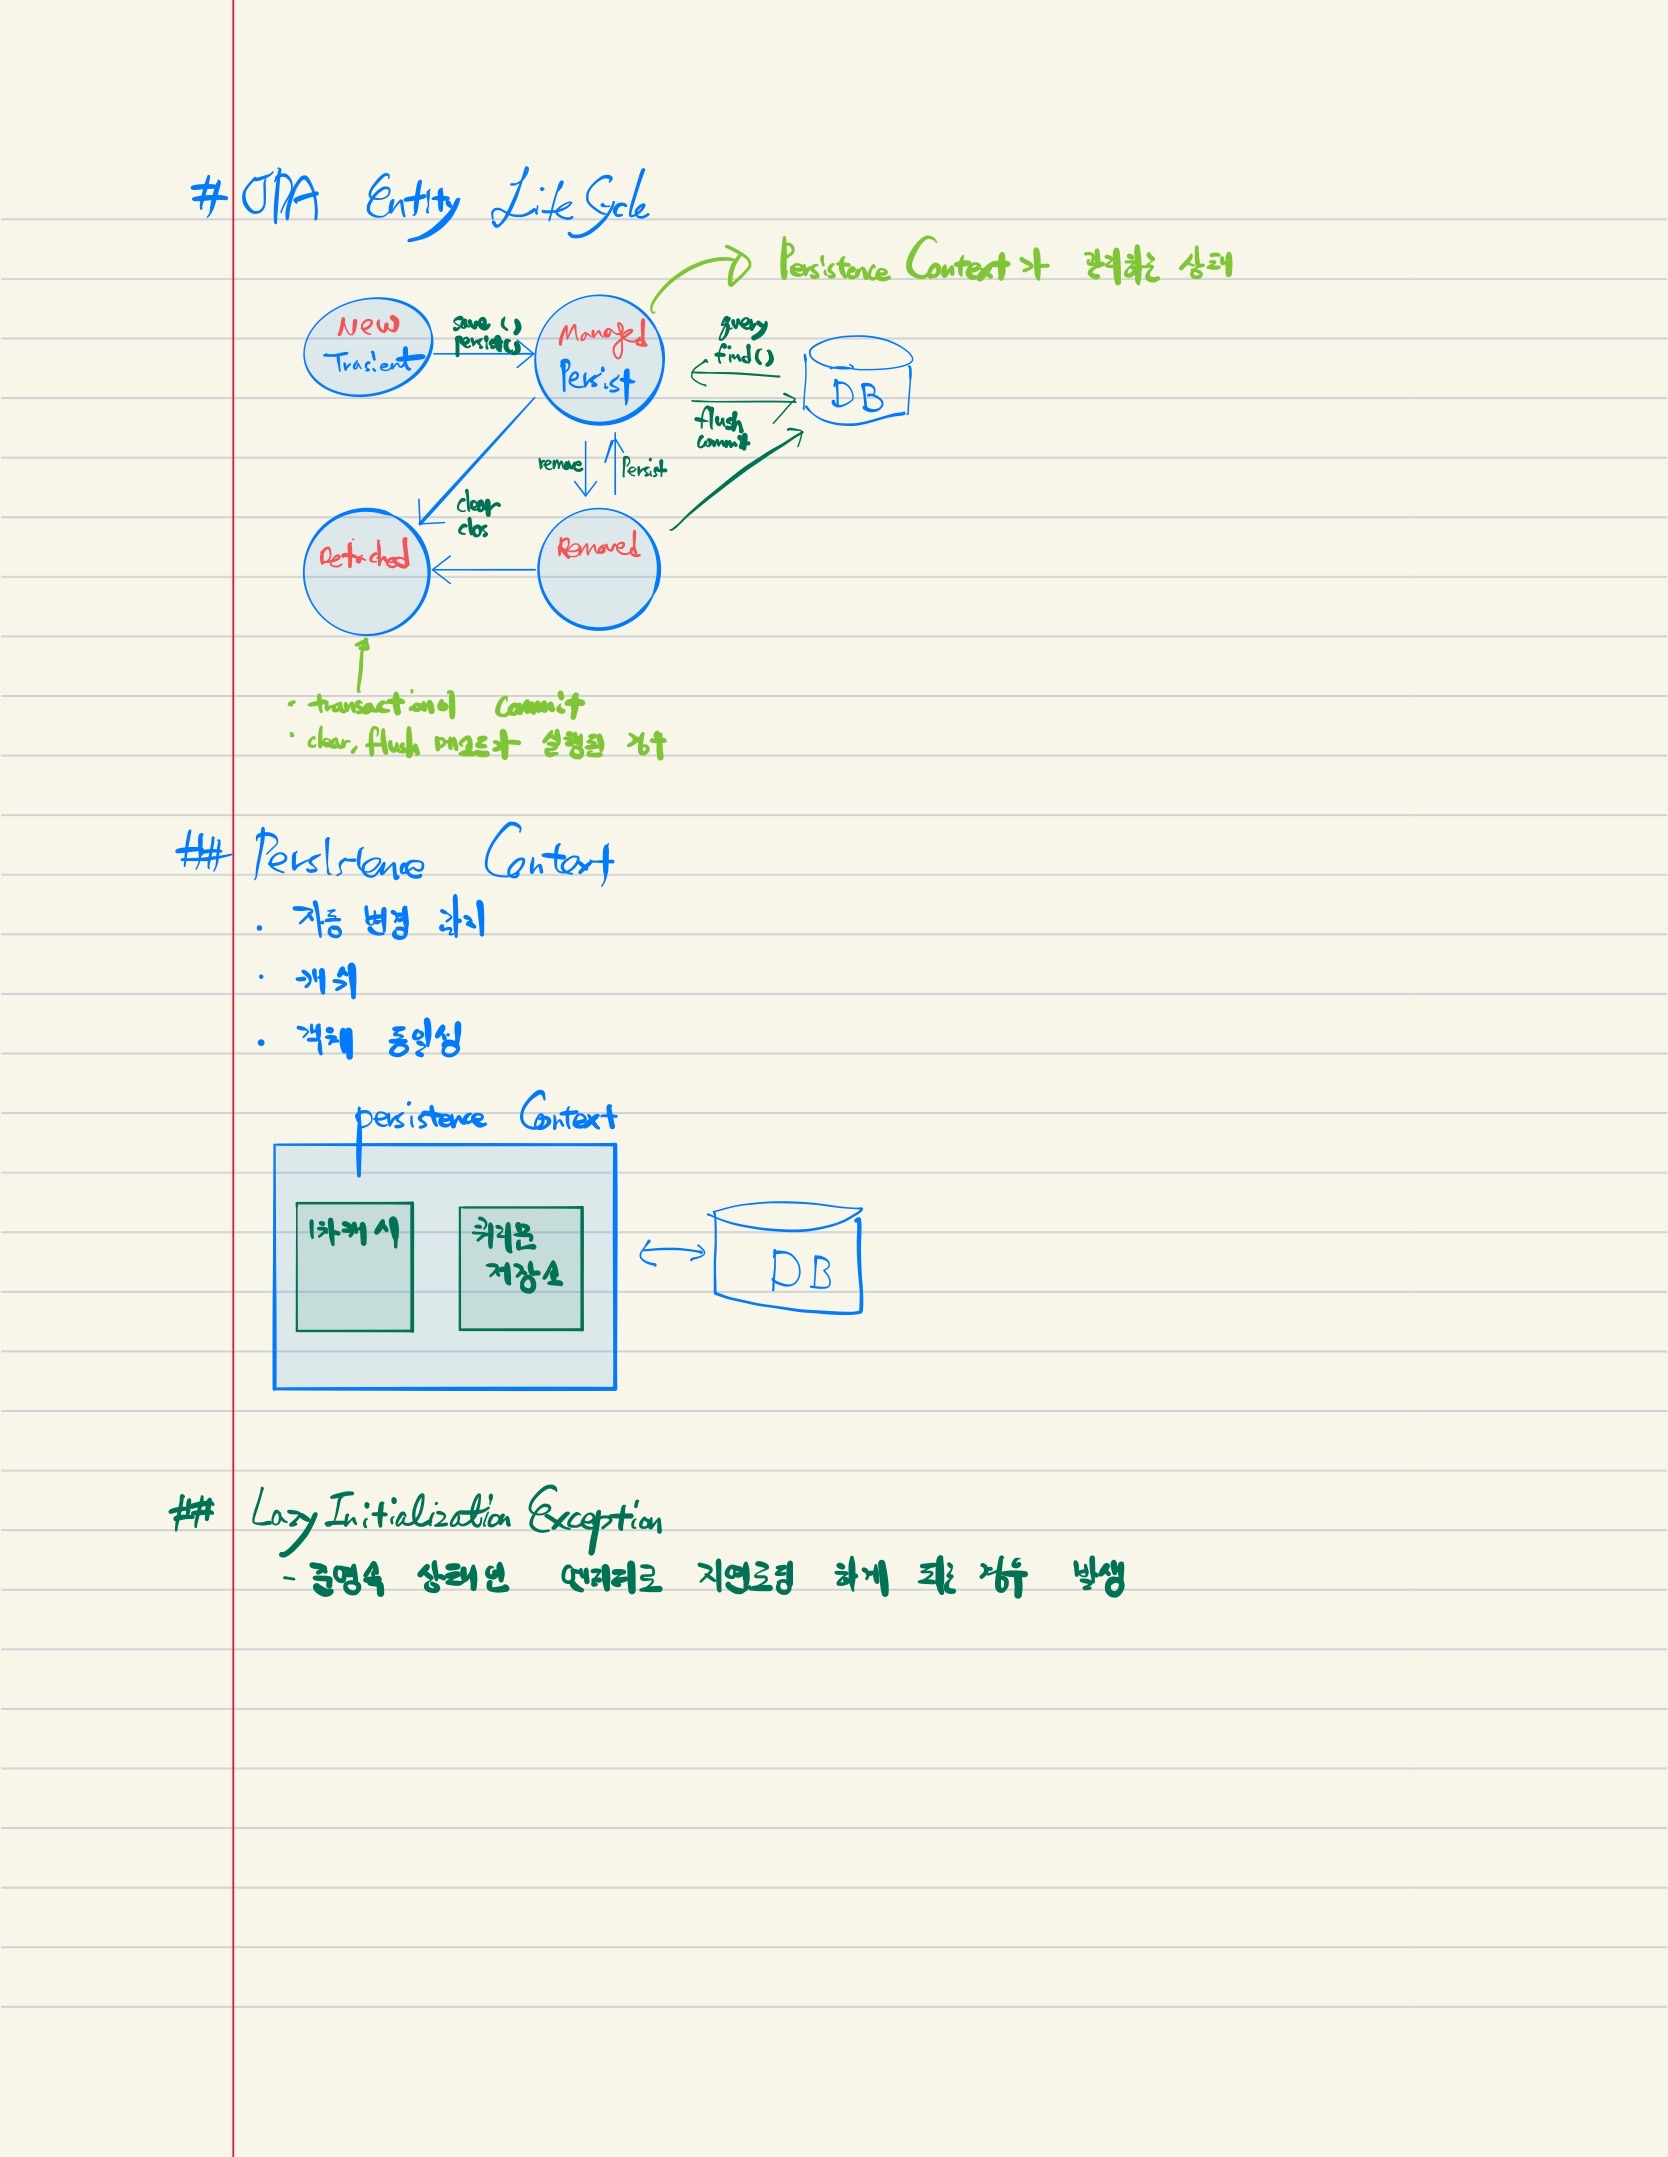 # JPA Entity LifeCycle
Persistence Context가 관리하는 상태
New
Trasient
save()
persist()
Managed
Persist
query
find()
DB
flush
commit
remove
Persist
clear
clos
Detached
Removed
· transaction이 commit
· clear, flush 메소드가 실행된 경우
## Persistence Context
· 자동 변경 관리
· 캐시
· 객체 동일성
persistence Context
1차캐시
쿼리문
저장소
DB
## LazyInitializationException
- 준영속 상태인 엔티티로 지연로딩 하게 되는 경우 발생